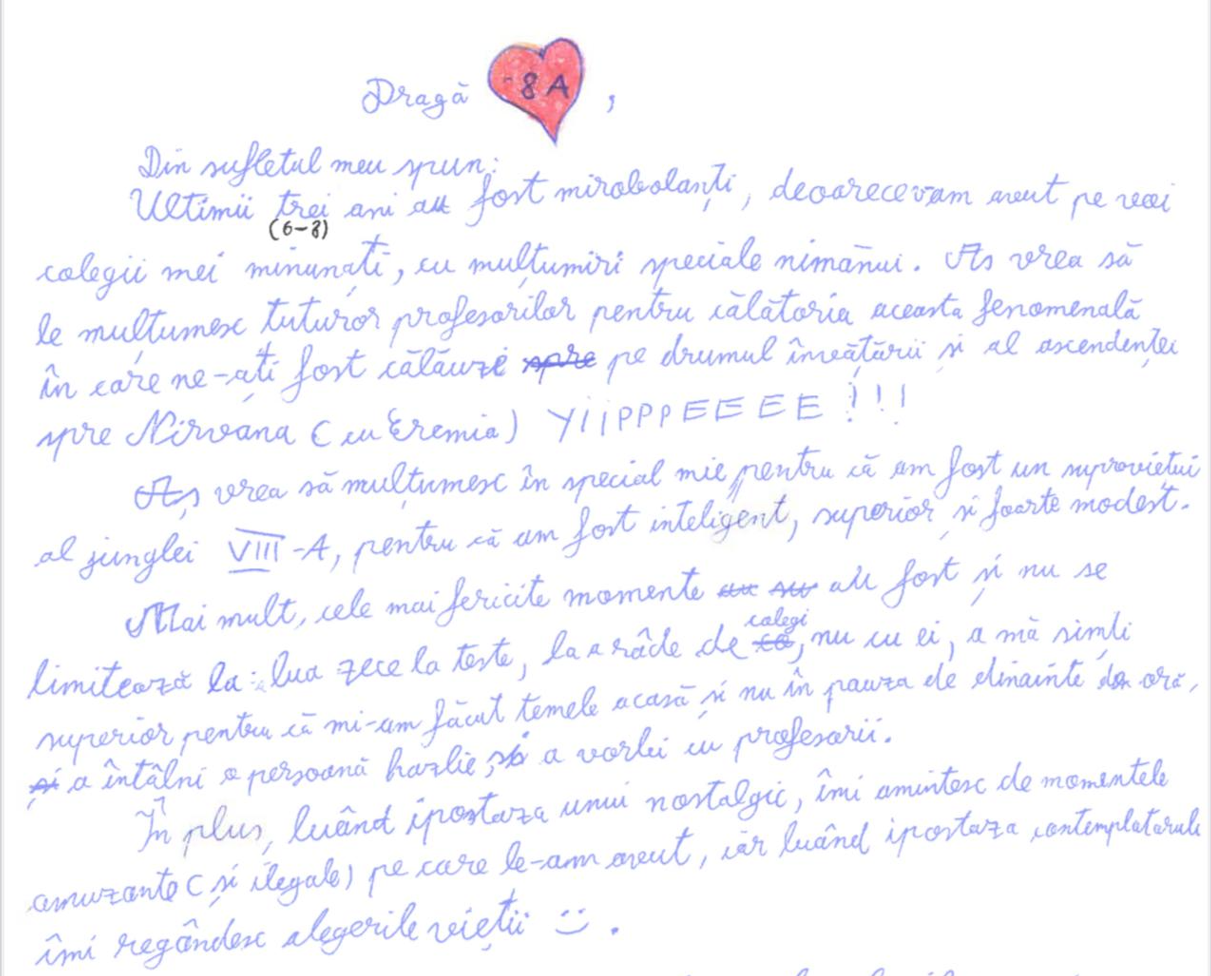 Dragă 8A,
Din sufletul meu spun:
Ultimii trei ani au fost mirobolanți, deoarece v-am avut pe voi
(6-8)
colegii mei minunați, cu mulțumiri speciale nimănui. Aș vrea să
le mulțumesc tuturor profesorilor pentru călătoria aceasta fenomenală
în care ne-ați fost călăuze spre pe drumul învățării și al ascendenței
spre Nirvana (cu Eremia) YIIPPPEEEEE!!!
Aș vrea să mulțumesc în special mie, pentru că am fost un suproviețui
al junglei VIII-A, pentru că am fost inteligent, superior și foarte modest.
Mai mult, cele mai fericite momente au fost și nu se
limitează la: lua zece la teste, la a râde de colegi, nu cu ei, a mă simți
superior pentru că mi-am făcut temele acasă și nu în pauza de dinainte de oră,
și a întâlni o persoană hazlie, a vorbi cu profesorii.
În plus, luând ipostaza unui nostalgic, îmi amintesc de momentele
amuzante (și ilegale) pe care le-am avut, iar luând ipostaza contemplatorulu
îmi regândesc alegerile vieții :).